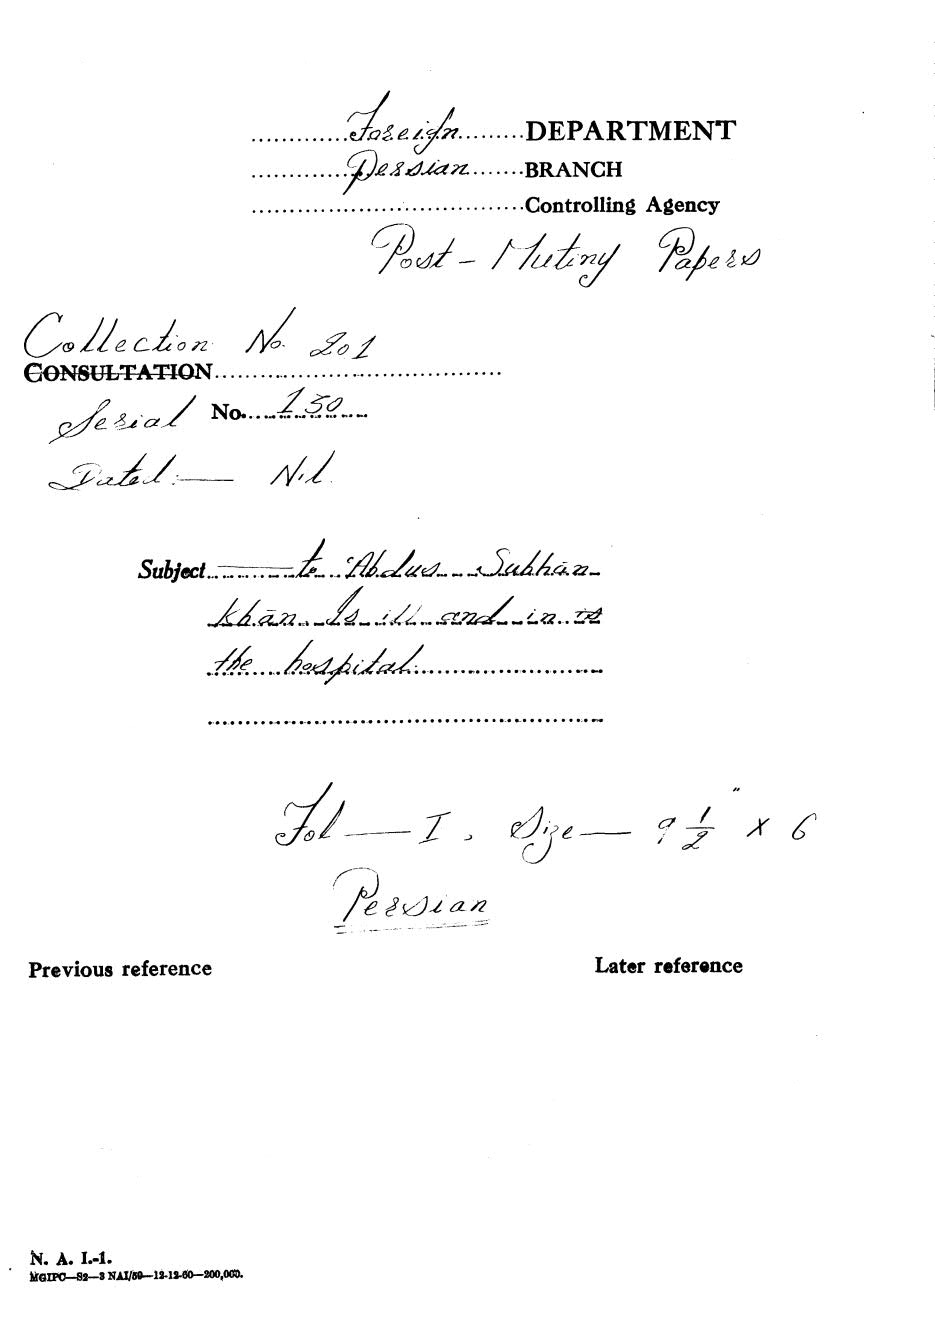 .............Foreign.........DEPARTMENT
.............Persian.......BRANCH
....................................Controlling Agency
Post - Mutiny Papers
Collection No. 201
CONSULTATION......................................
Serial No. 150
Dated :— Nil.
Subject ——— to 'Abdus Subhān
khān. Is ill and in is
the hospital.
Fol — I, Size — 9 1/2" x 6
Persian
Previous reference Later reference
N. A. I.-1.
MGIPC—S2—3 NAI/59—12-12-60—200,000.